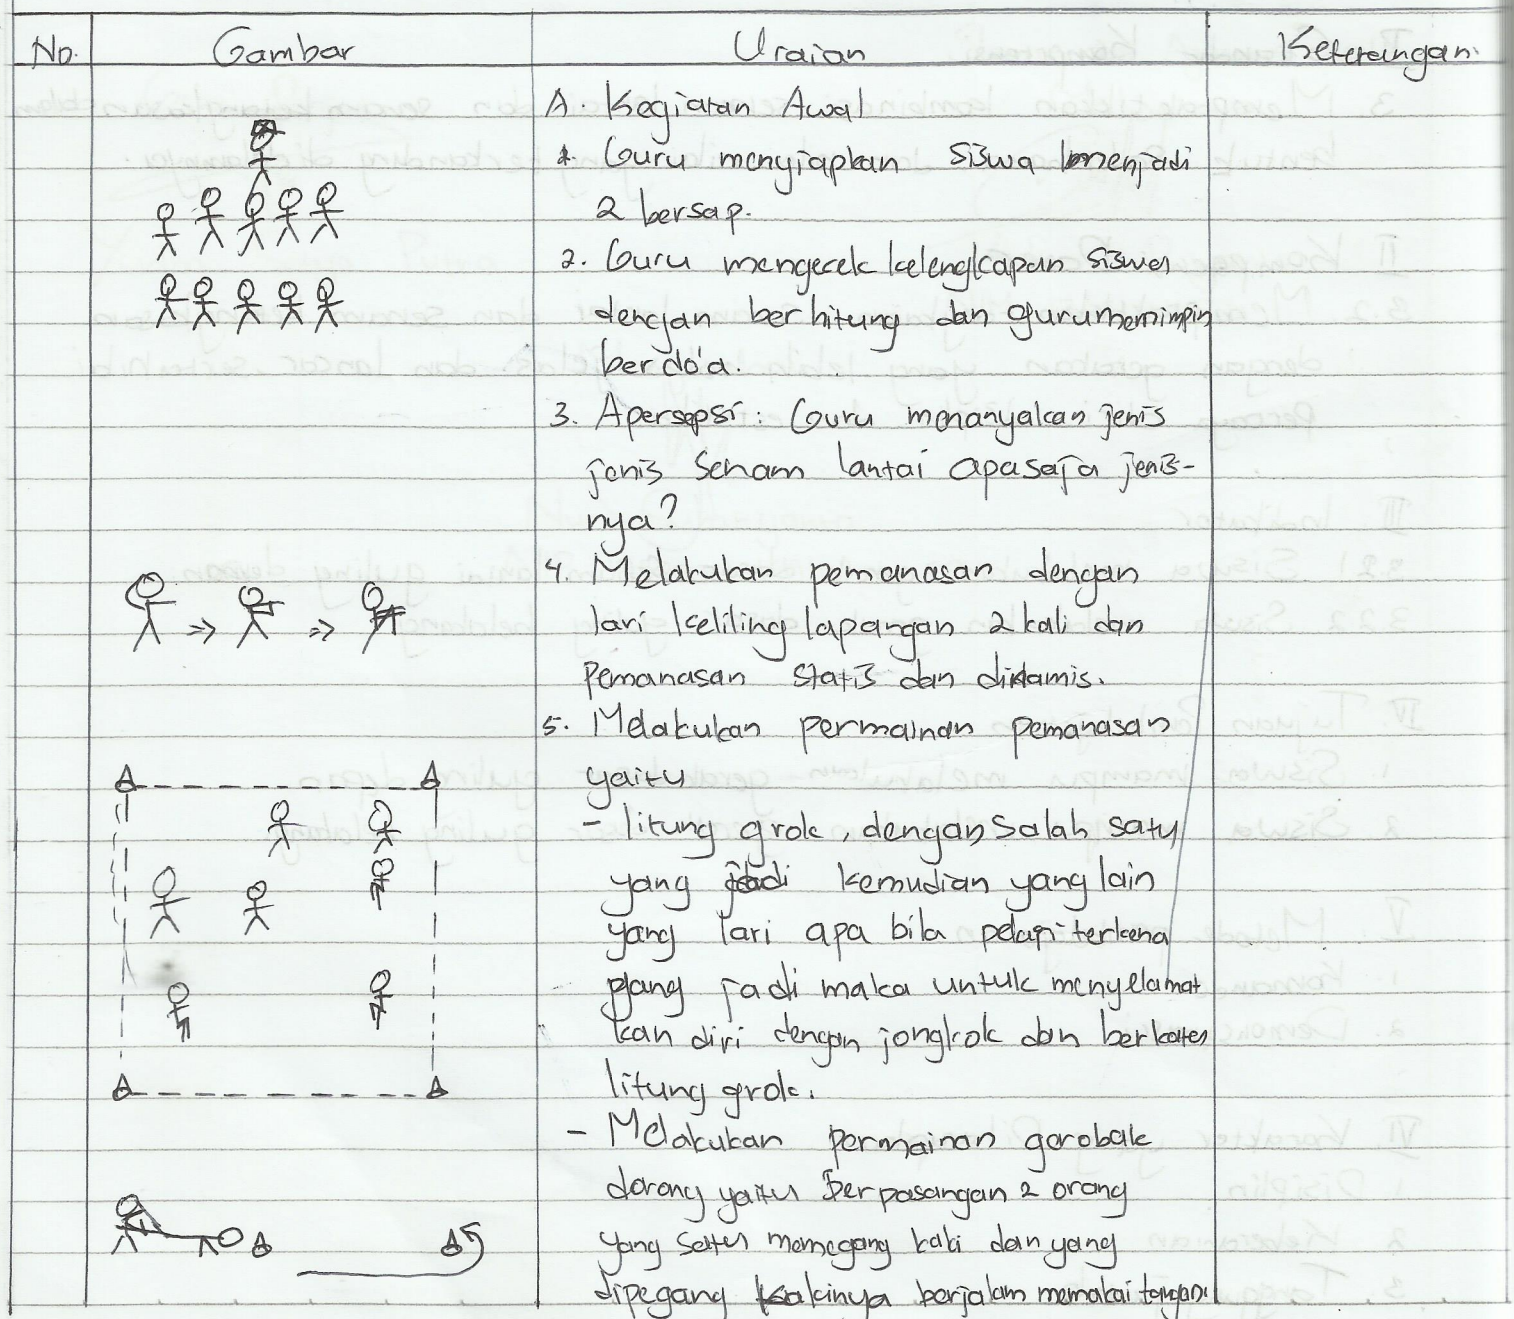 No. Gambar Uraian Keterangan.
A. Kegiatan Awal
1. Guru menyiapkan siswa menjadi
2 bersap.
2. Guru mengecek kelengkapan siswa
dengan berhitung dan guru memimpin
berdo'a.
3. Apersepsi : Guru menanyakan jenis
jenis senam lantai apasaja jenis-
nya?
4. Melakukan pemanasan dengan
lari keliling lapangan 2 kali dan
pemanasan statis dan dinamis.
5. Melakukan permainan pemanasan
yaitu
- litung grok, dengan salah satu
yang jadi kemudian yang lain
yang lari apa bila pelari terkena
yang jadi maka untuk menyelamat
kan diri dengan jongkok dan berkata
litung grok.
- Melakukan permainan gerobak
dorong yaitu Berpasangan 2 orang
yang satu memegang kaki dan yang
dipegang kakinya berjalan memakai tangan.